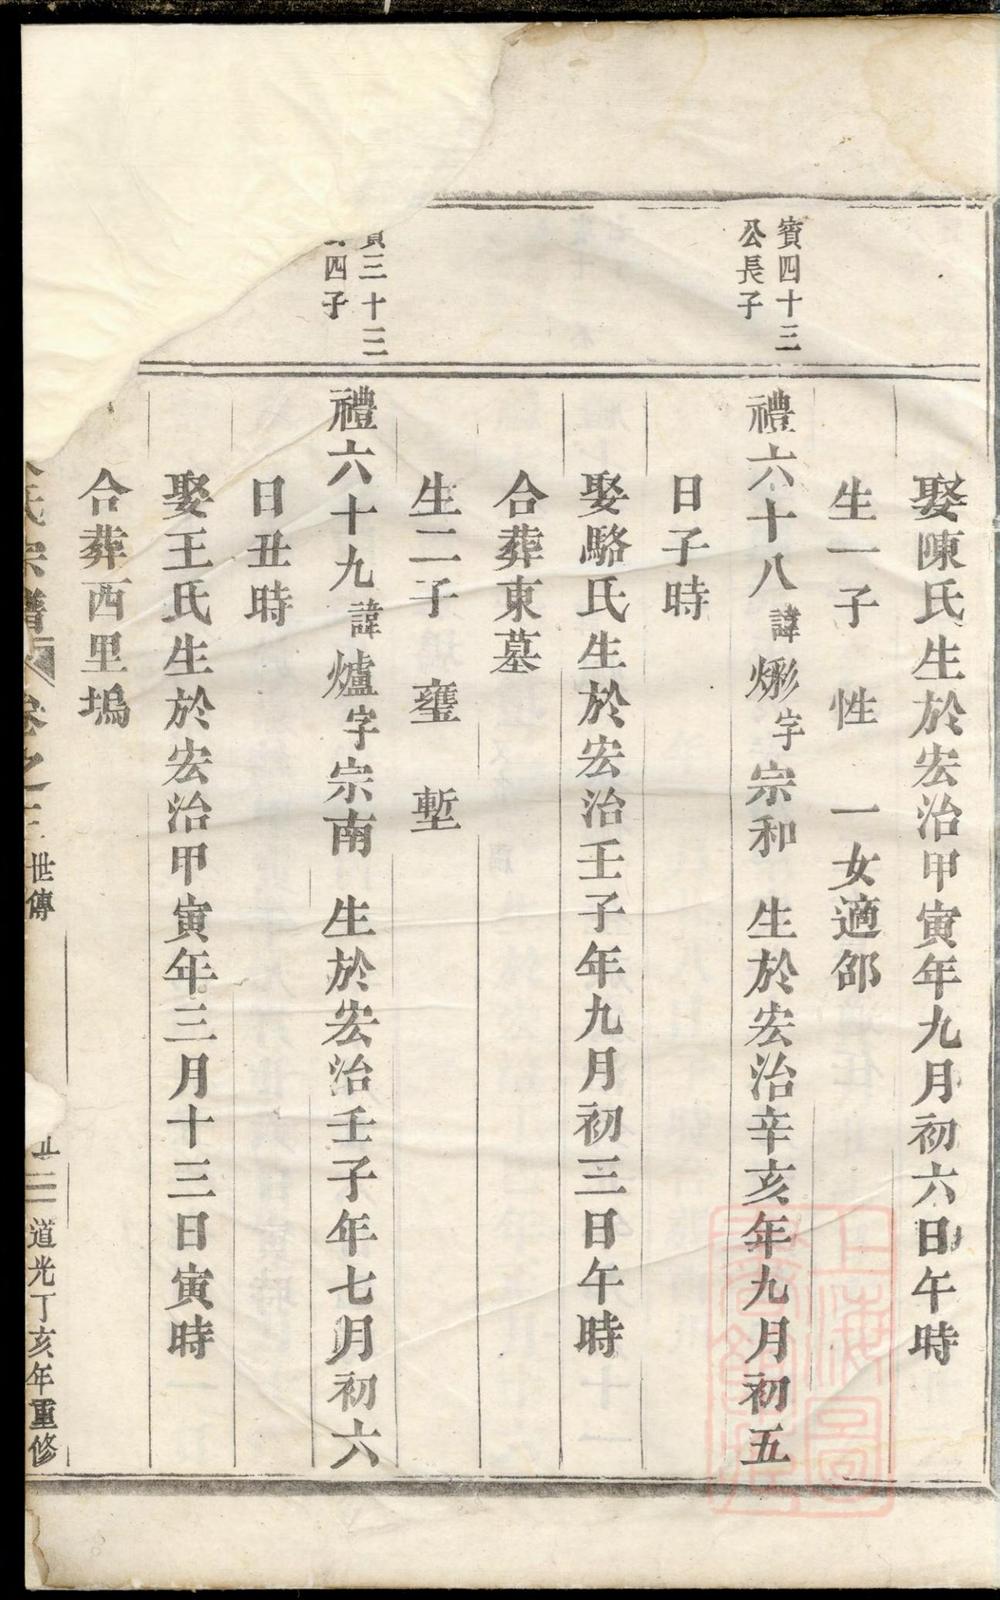 娶陳氏生於宏治甲寅年九月初六日午時
生一子 性 一女適邵
賓四十三
公長子
禮六十八諱烿字宗和 生於宏治辛亥年九月初五
日子時
娶駱氏生於宏治壬子年九月初三日午時
合葬東墓
生二子 壅 塹
賓三十三
四子
禮六十九諱爐字宗南 生於宏治壬子年七月初六
日丑時
娶王氏生於宏治甲寅年三月十三日寅時
合葬西里塢
氏宗譜 卷之三 世傳
道光丁亥年重修
上海圖書館藏